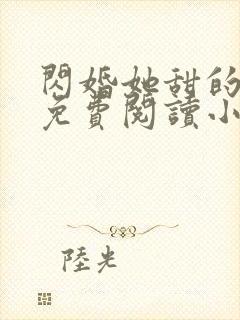 閃婚她甜的
免費閱讀小
陸光